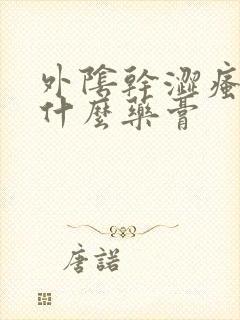 外陰幹澀瘙
什麼藥膏
唐諾